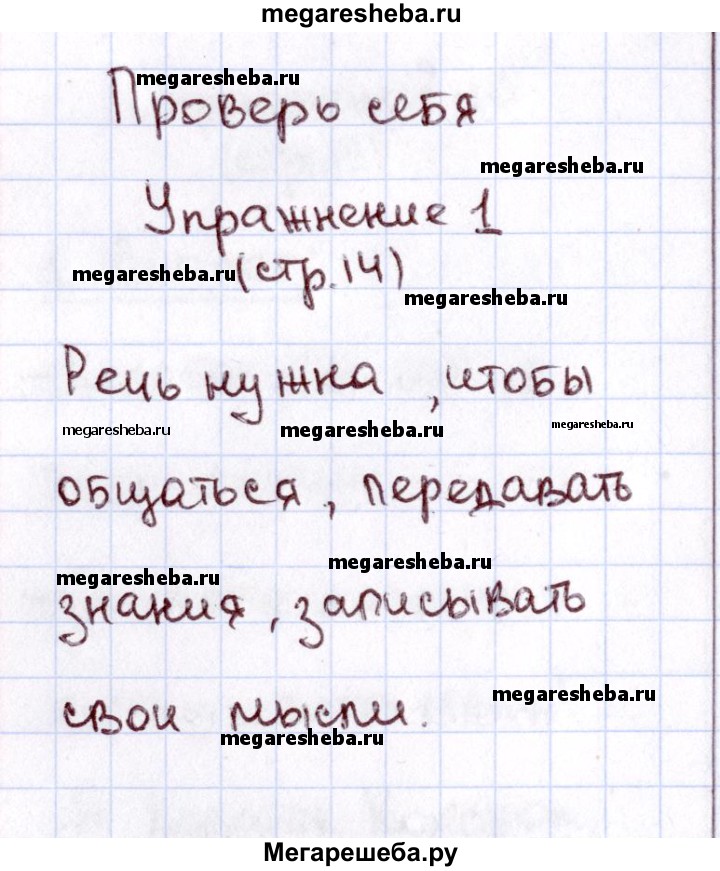 megaresheba.ru
megaresheba.ru
Проверь себя
megaresheba.ru
Упражнение 1
megaresheba.ru (стр.14)
megaresheba.ru
Речь нужна , чтобы
megaresheba.ru megaresheba.ru megaresheba.ru
общаться , передавать
megaresheba.ru megaresheba.ru
знания , записывать
megaresheba.ru
свои мысли.
megaresheba.ru
Мегарешеба.ру